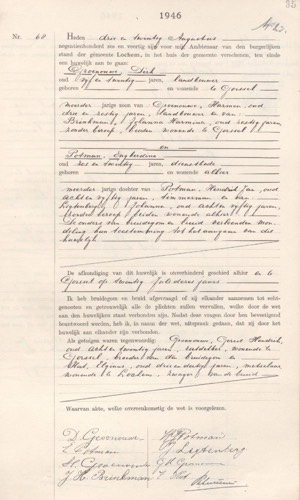 1946
35
Nr. 60
Heden drie en twintig Augustus
negentienhonderd zes en veertig zijn voor mij Ambtenaar van den burgerlijken
stand der gemeente Lochem, in het huis der gemeente verschenen, ten einde
een huwelijk aan te gaan:
Groenouwe, Dirk
oud vijf en twintig jaren, landbouwer
geboren en wonende te Gorssel
meerder jarige zoon van Groenouwe, Harmen, oud
drie en zestig jaren, landbouwer en van
Brinkman, Johanna Harmina, oud zestig jaren
zonder beroep, beiden wonende te Gorssel
en
Potman, Ingberdina
oud zes en twintig jaren, dienstbode
geboren en wonende alhier
meerder jarige dochter van Potman, Hendrik Jan, oud
acht en vijftig jaren, timmerman en van
Ligtenberg, Johanna, oud acht en vijftig jaren,
zonder beroep, beiden wonende alhier
De ouders van bruidegom en bruid verklaarden mon-
deling hun toestemming tot het aangaan van dit
huwelijk
De afkondiging van dit huwelijk is onverhinderd geschied alhier en te
Gorssel op twintig Juli dezes jaars
Ik heb bruidegom en bruid afgevraagd of zij elkander aannemen tot echt-
genooten en getrouwelijk alle de plichten zullen vervullen, welke door de wet
aan den huwelijken staat verbonden zijn. Nadat deze vragen door hen bevestigend
beantwoord werden, heb ik, in naam der wet, uitspraak gedaan, dat zij door het
huwelijk aan elkander zijn verbonden.
Als getuigen waren tegenwoordig: Groenouwe, Gerrit Hendrik,
oud acht en twintig jaren, wonende te
Gorssel, broeder van den bruidegom en
oud drie en dertig jaren,
wonende te Lochem, zwager van de bruid
Waarvan akte, welke overeenkomstig de wet is voorgelezen.
D. Groenouwe
H J Potman
I. Potman
J Ligtenberg
H. Groenouwe
G.H. Groenouwe
J. H. Brinkman